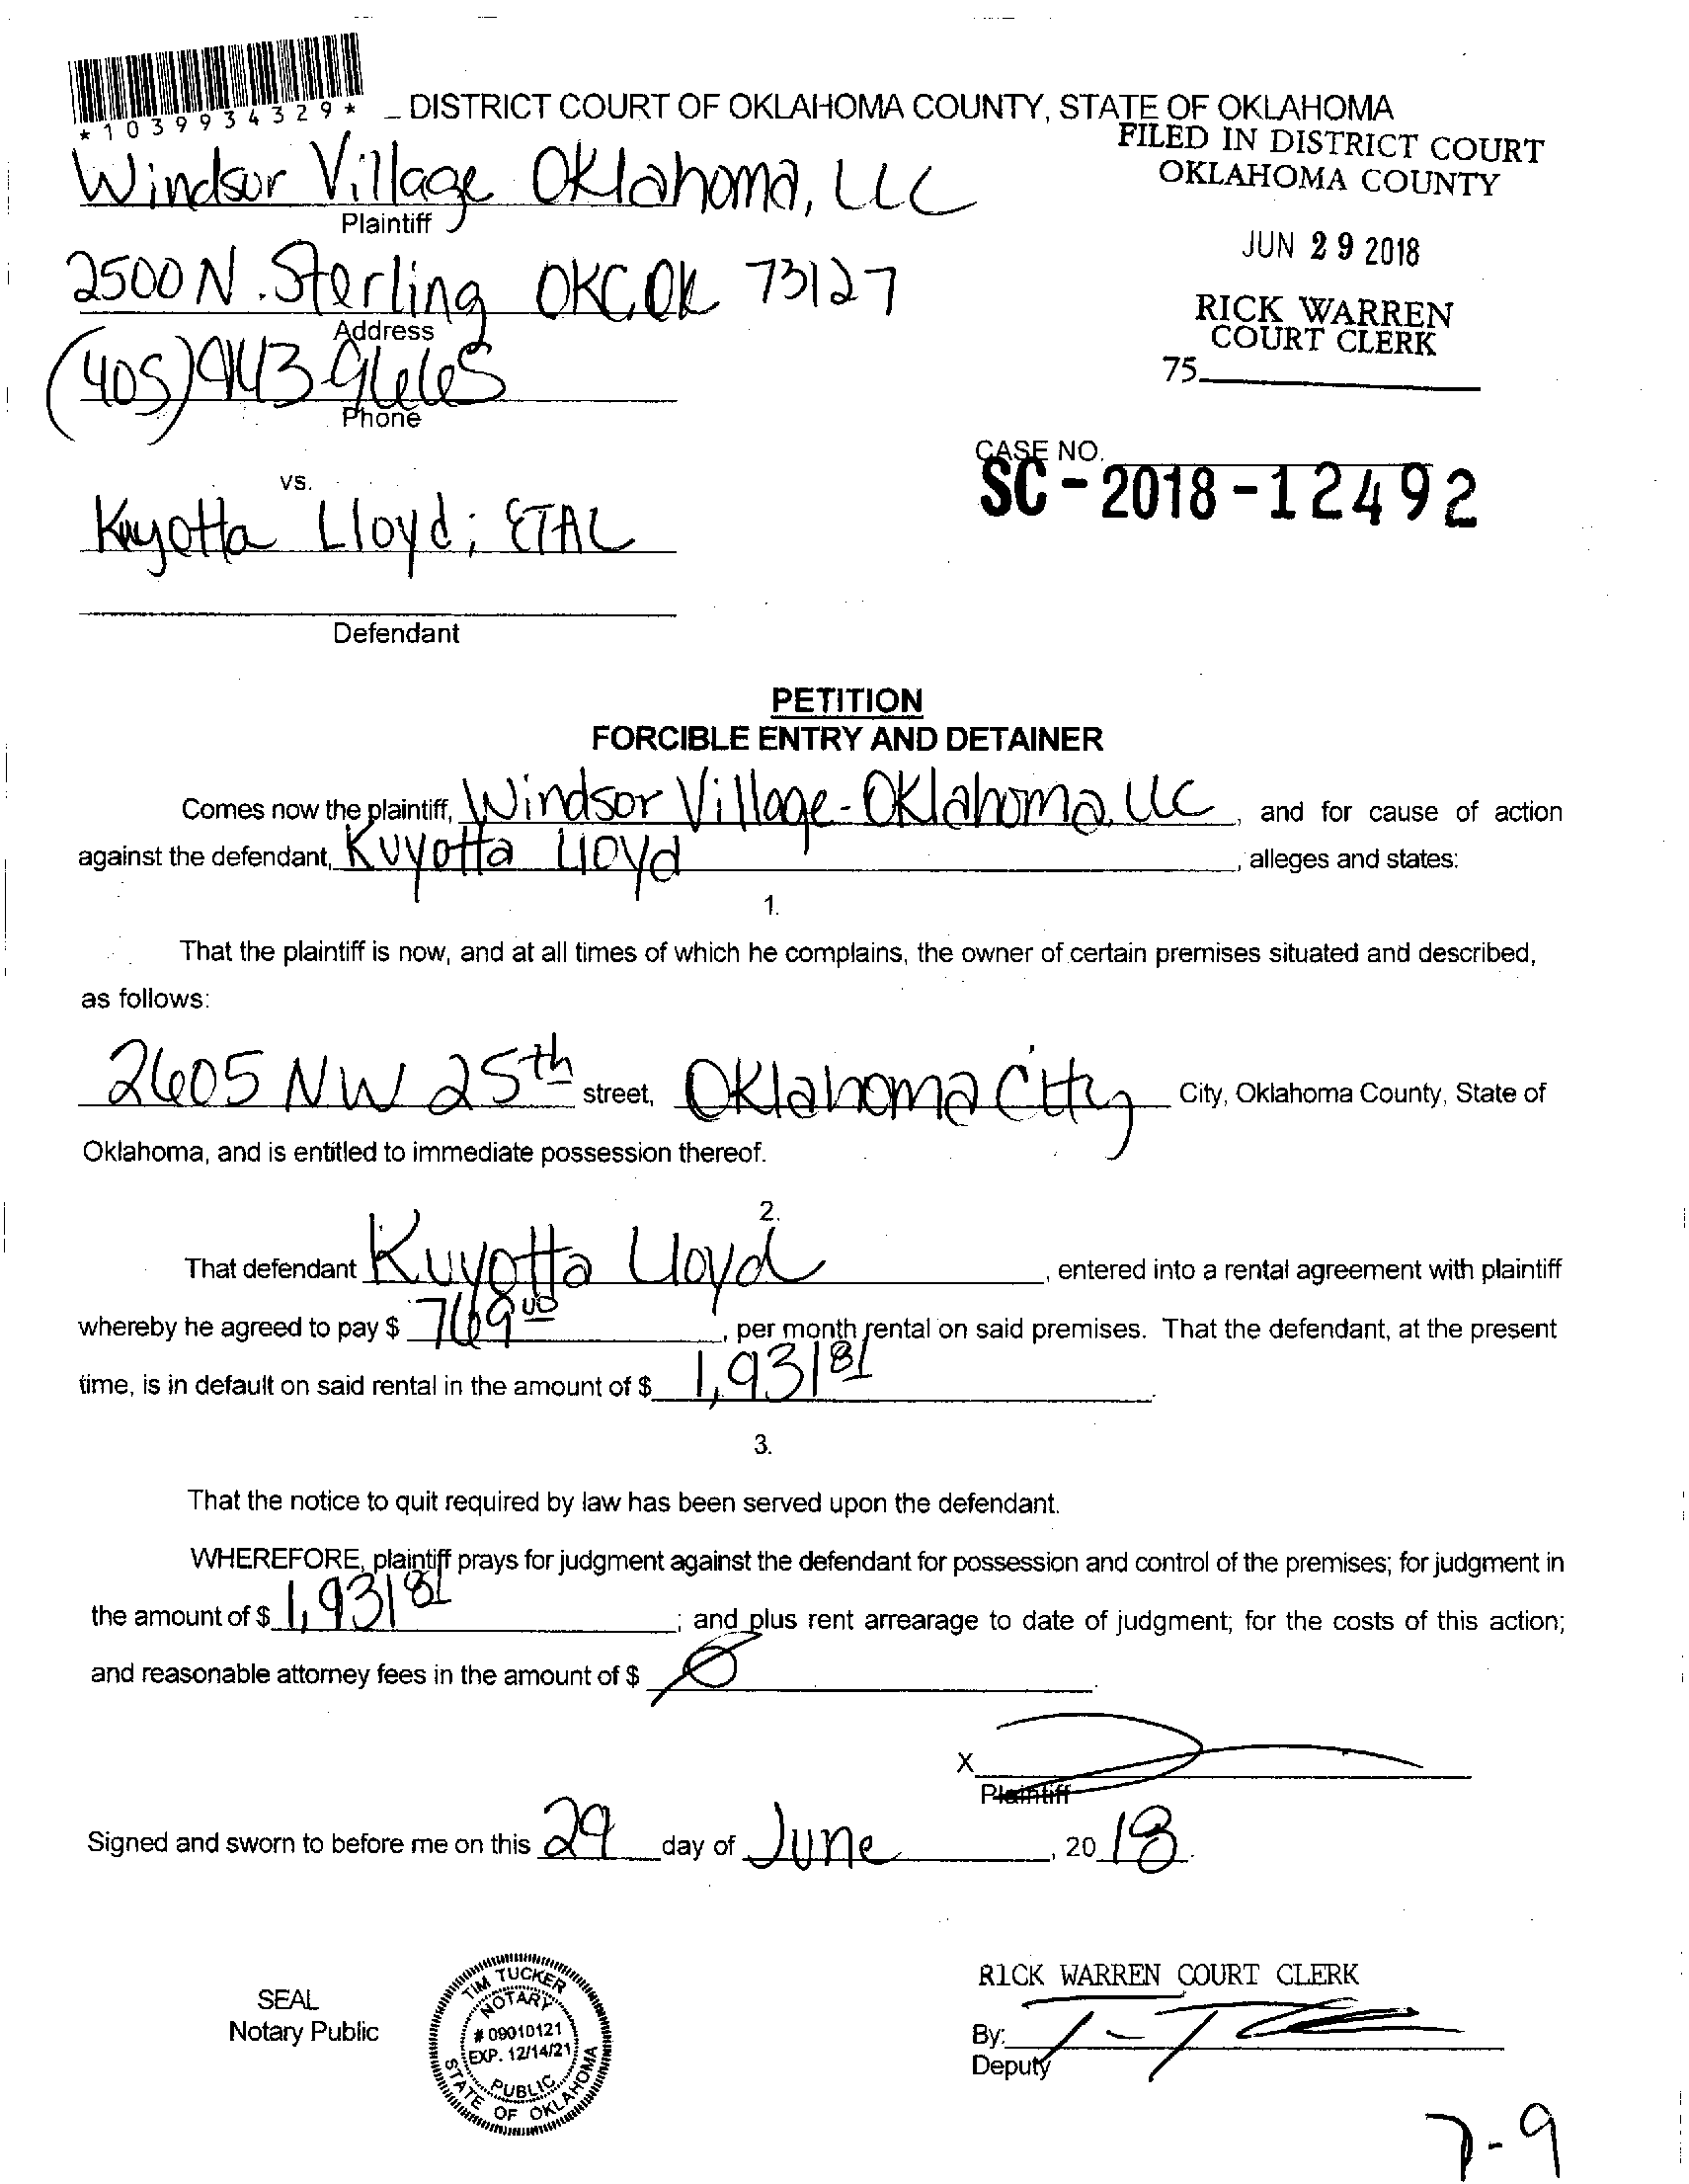 *1039934329*
DISTRICT COURT OF OKLAHOMA COUNTY, STATE OF OKLAHOMA
FILED IN DISTRICT COURT
OKLAHOMA COUNTY
Windsor Village Oklahoma, LLC
Plaintiff
JUN 29 2018
2500 N. Sterling OKC, OK 73127
Address
RICK WARREN
COURT CLERK
75
(405) 943-9665
Phone
CASE NO.
SC-2018-12492
vs.
Kuyotta Lloyd; ETAL
Defendant
PETITION
FORCIBLE ENTRY AND DETAINER
Comes now the plaintiff, Windsor Village-Oklahoma, LLC, and for cause of action
against the defendant, Kuyotta Lloyd, alleges and states:
1.
That the plaintiff is now, and at all times of which he complains, the owner of certain premises situated and described,
as follows:
2605 NW 25th street, Oklahoma City City, Oklahoma County, State of
Oklahoma, and is entitled to immediate possession thereof.
2.
That defendant Kuyotta Lloyd, entered into a rental agreement with plaintiff
whereby he agreed to pay $ 769 00, per month rental on said premises. That the defendant, at the present
time, is in default on said rental in the amount of $ 1,931 81.
3.
That the notice to quit required by law has been served upon the defendant.
WHEREFORE, plaintiff prays for judgment against the defendant for possession and control of the premises; for judgment in
the amount of $ 1,931 81; and plus rent arrearage to date of judgment; for the costs of this action;
and reasonable attorney fees in the amount of $ Ø.
X
Plaintiff
Signed and sworn to before me on this 29 day of June, 20 18.
RICK WARREN COURT CLERK
SEAL
Notary Public
TIM TUCKER
NOTARY
# 09010121
EXP. 12/14/21
PUBLIC
STATE OF OKLAHOMA
By:
Deputy
7-9